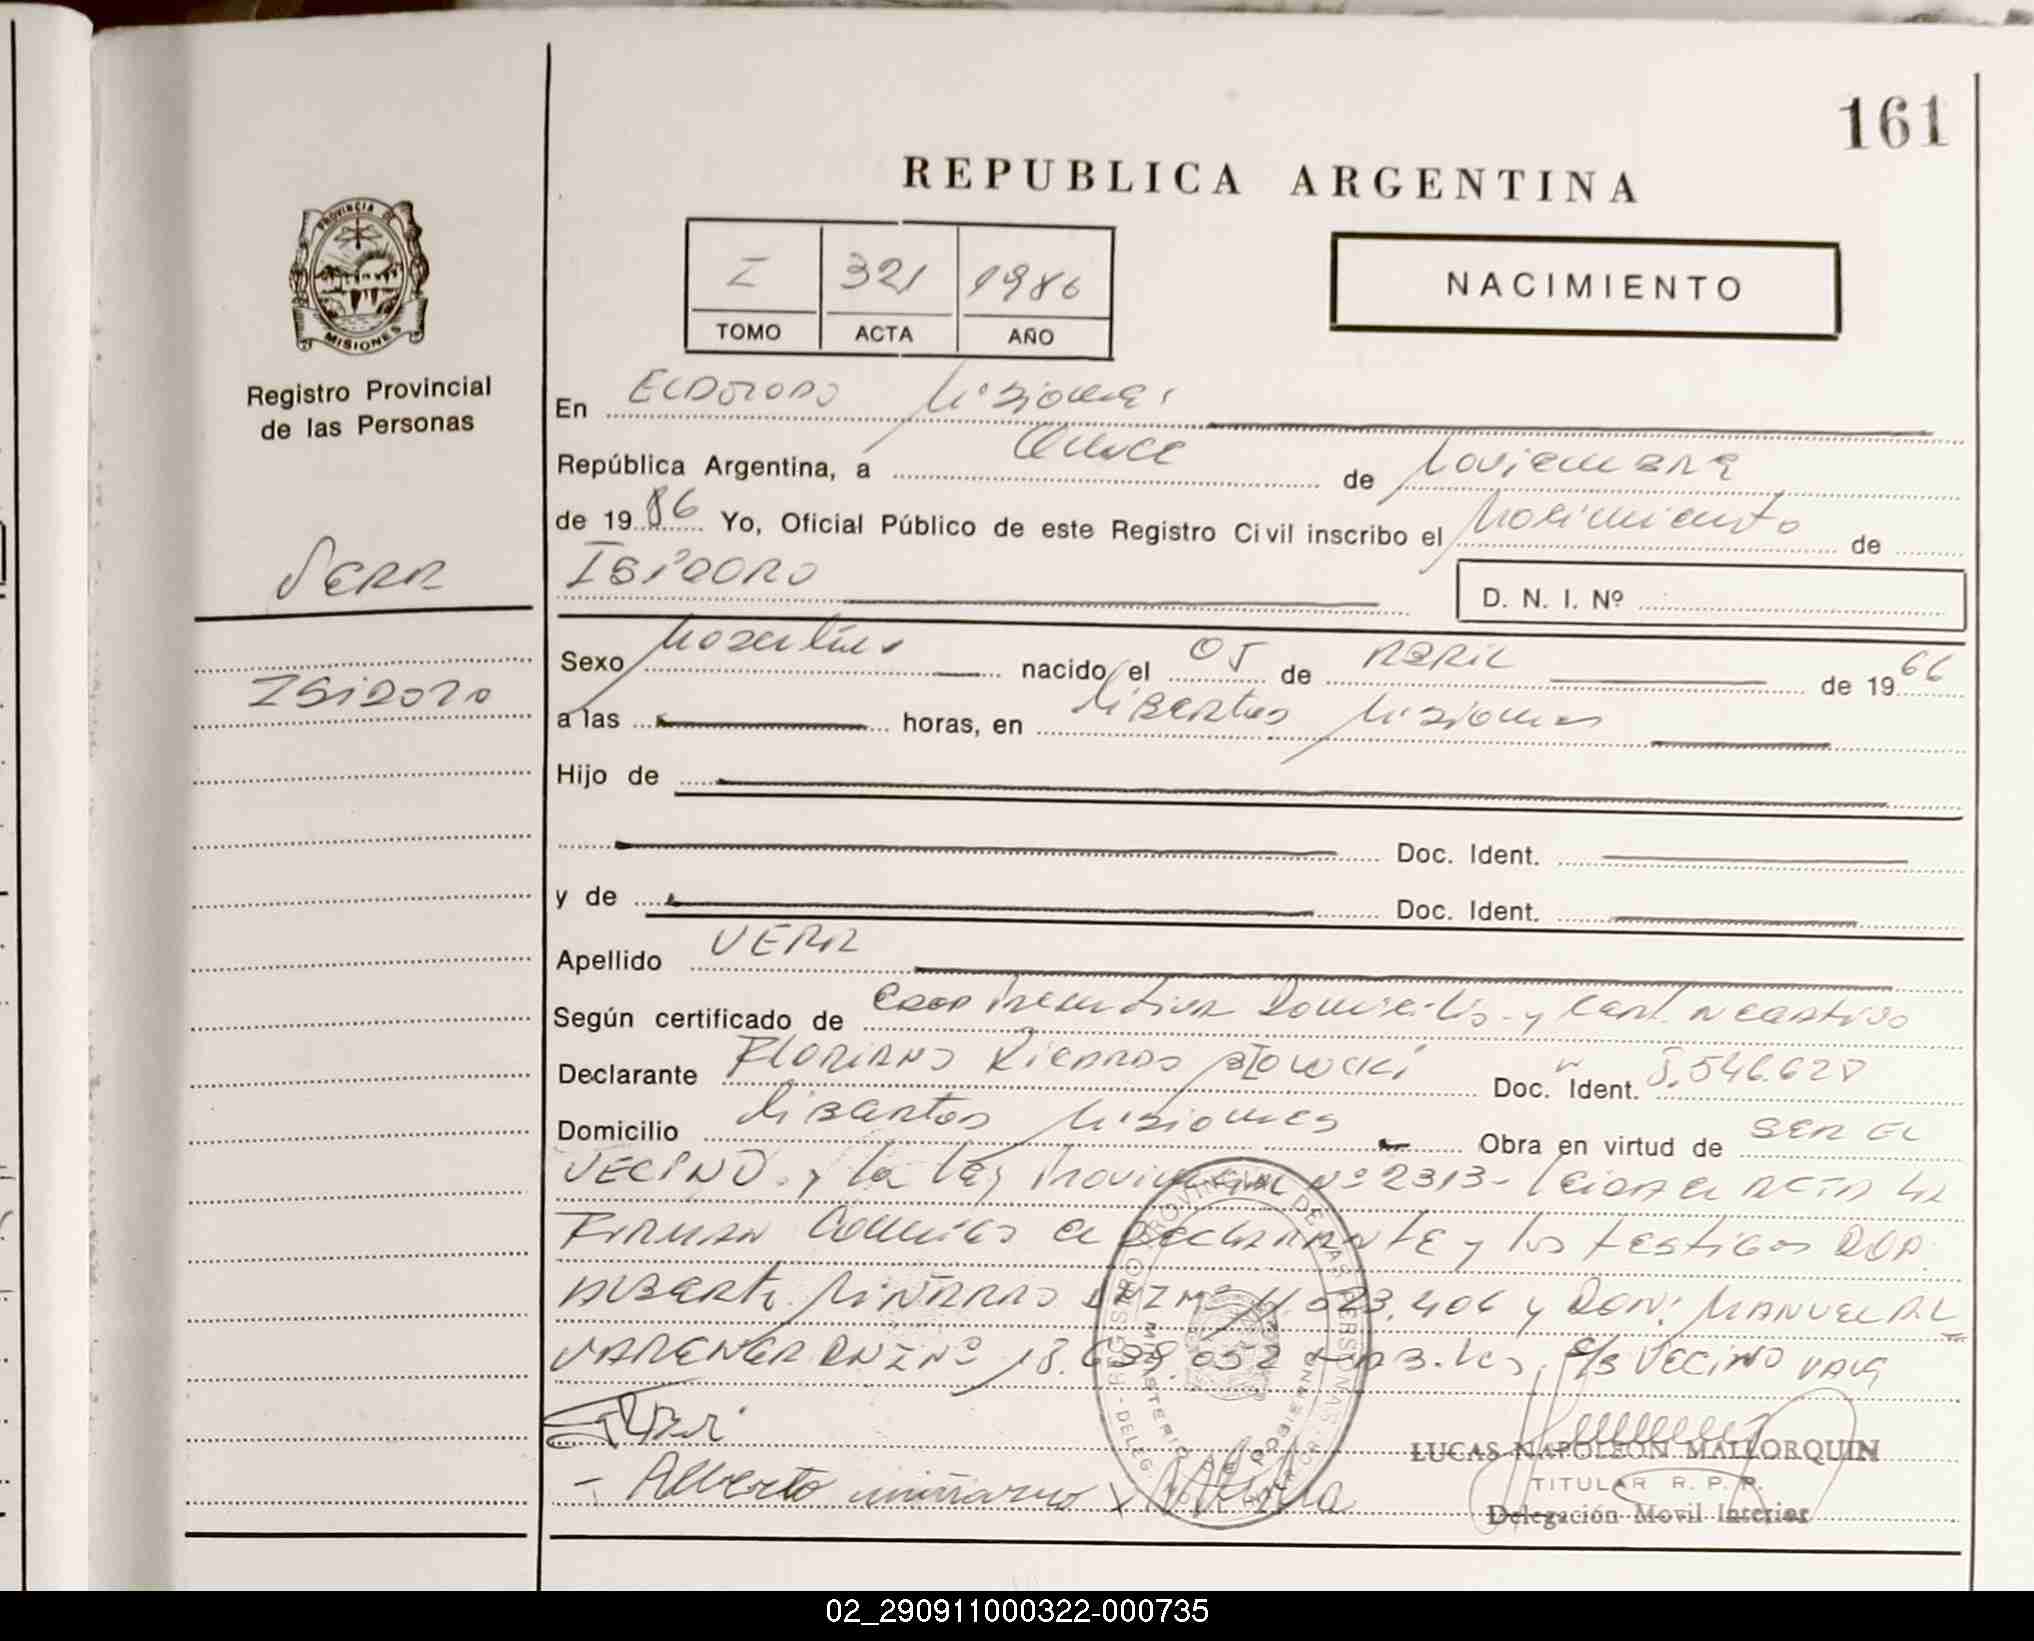 161
REPUBLICA ARGENTINA
PROVINCIA DE
MISIONES
Registro Provincial
de las Personas
I 321 1986
TOMO ACTA AÑO
NACIMIENTO
En Eldorado Misiones
República Argentina, a once de Noviembre
de 1986 Yo, Oficial Público de este Registro Civil inscribo el Nacimiento de
Vera
Isidoro
ISIDORO
D. N. I. Nº
Sexo Masculino nacido el 05 de ABRIL de 1966
a las horas, en Libertad Misiones
Hijo de
Doc. Ident.
y de Doc. Ident.
Apellido VERA
Según certificado de y negativo
Declarante Floriano Ricardo Doc. Ident.
Domicilio Libertad Misiones Obra en virtud de SER EL
VECINO y la Ley Provincial Nº 2313- Leida el ACTA la
FIRMAN el DECLARANTE y los testigos
Alberto Miñarro DNI Nº 11.023.406 y DON: MANUEL AL
VARENGA DNI Nº 18. 052 E/S VECINO VALE
Alberto miñarro
LUCAS NAPOLEON MALLORQUIN
TITULAR R. P. P.
Delegación Movil Interior
REGISTRO PROVINCIAL DE LAS PERSONAS
MINISTERIO DE GOBIERNO
02_290911000322-000735